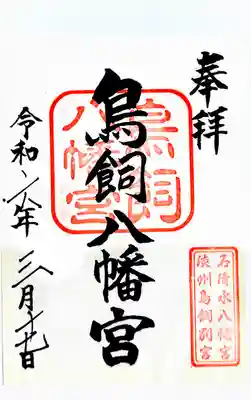 奉拝
石清水八幡宮
淡州鳥飼別宮
鳥飼八幡宮
鳥飼
八幡宮
令和六年
三月